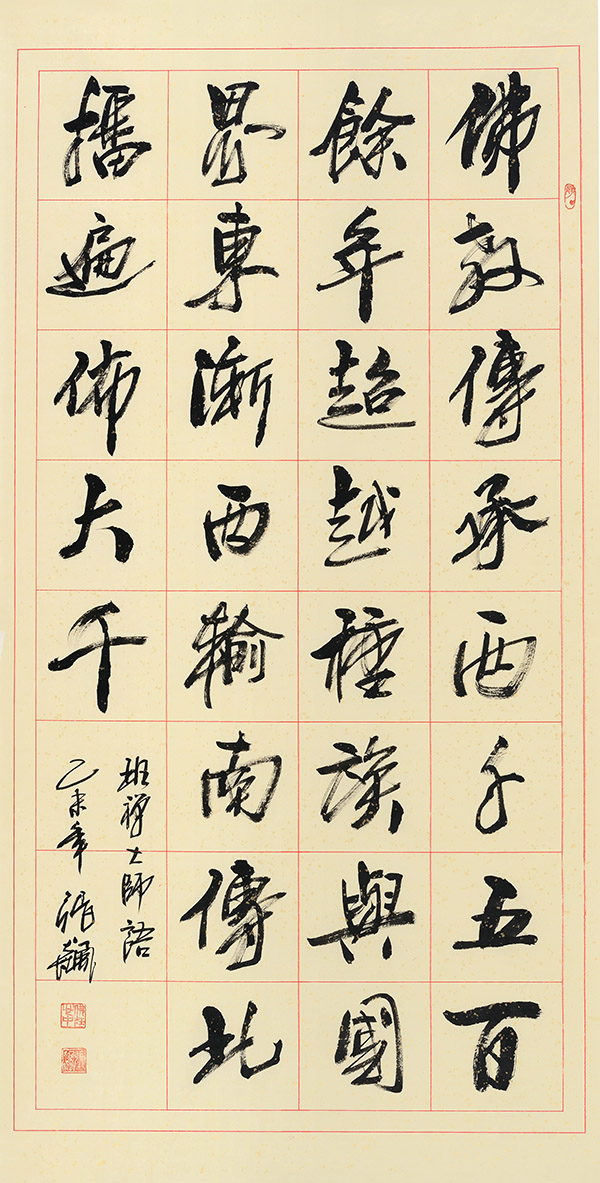 佛教傳承兩千五百
餘年超越種族與國
界東漸西輸南傳北
播遍佈大千
班禪大師語
乙未年 張飆